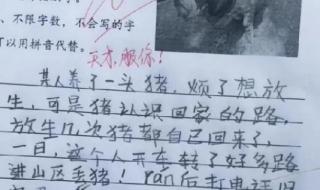 、不限字数，不会写的字
可以用拼音代替。
天才，服你！
某人养了一头猪，烦了想放
生，可是猪认识回家的路，
放生n次猪都自己回来了，
一日，这个人开车转了好多路
进山区丢猪！ran后打电话